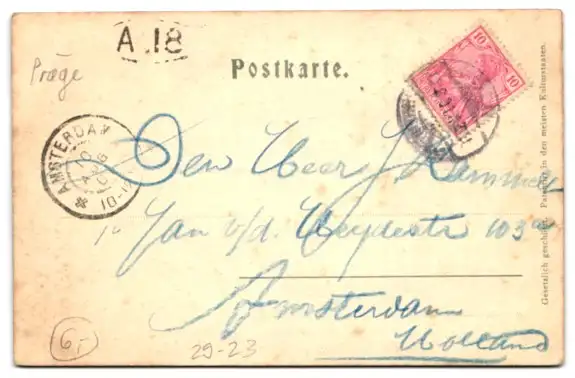 A.18
Præge
Postkarte.
10 10
AMSTERDAM
10-12
Den Heer J. Kammer
Jan v/d. Heydestr 103a
Amsterdam
Holland
Gesetzlich geschützt. Patent in den meisten Kulturstaaten.
6,-
29-23